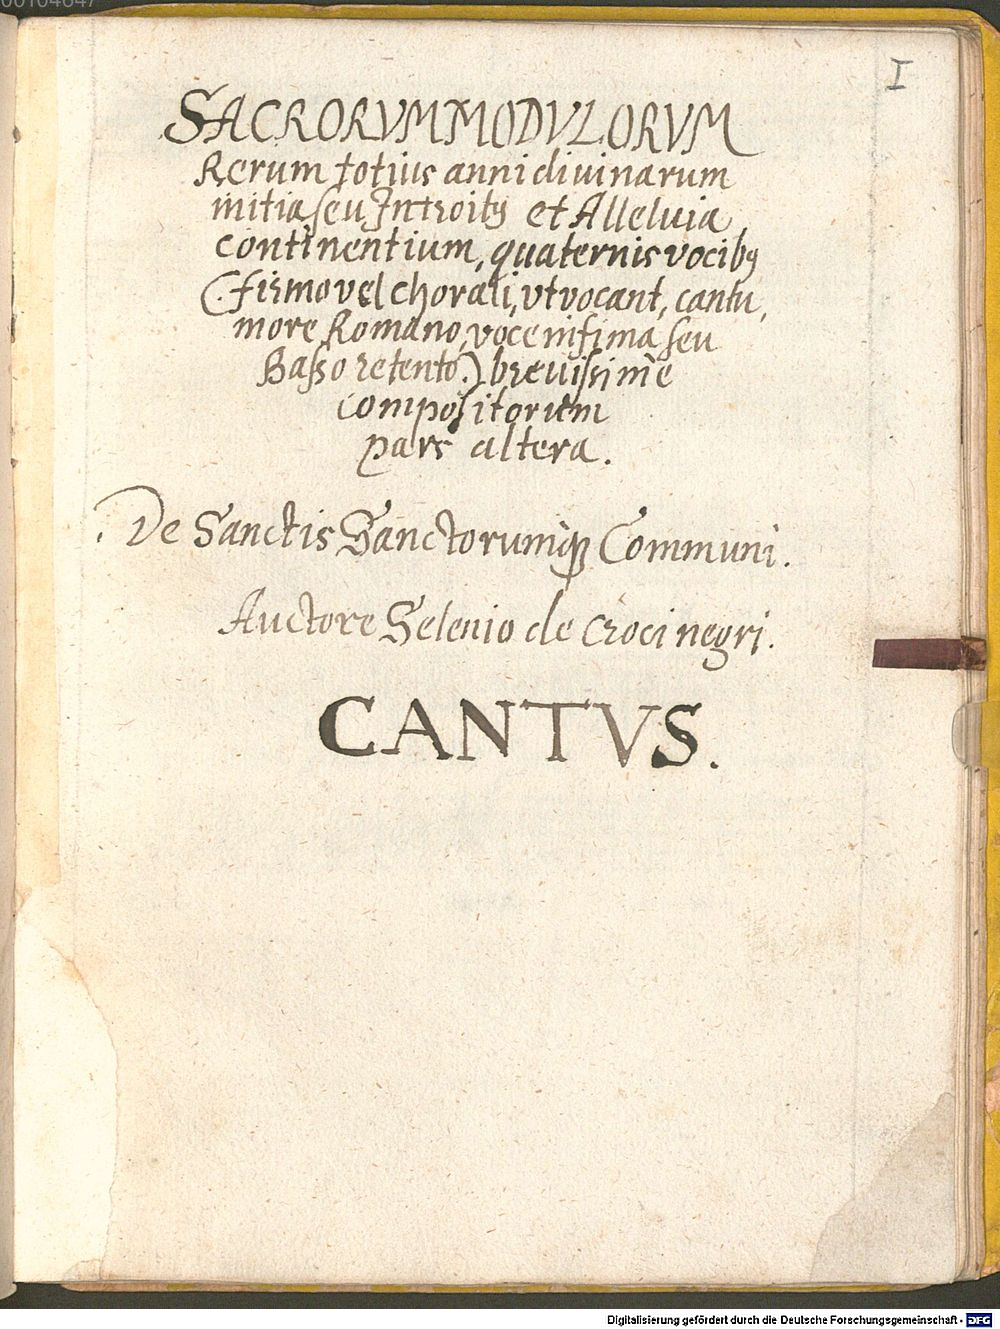 00104647
I
SACRORVM MODVLORVM
Rerum totius anni diuinarum
initia seu Introitꝰ et Alleluia,
continentium, quaternis vocibꝰ
(firmo vel chorali, vt vocant, cantu,
more Romano, voce infima seu
Basso retento.) breuissime
compositorum
pars altera.
De Sanctis Sanctorumq̃ Communi.
Auctore Selenio de Croci negri.
CANTVS.
Digitalisierung gefördert durch die Deutsche Forschungsgemeinschaft - DFG